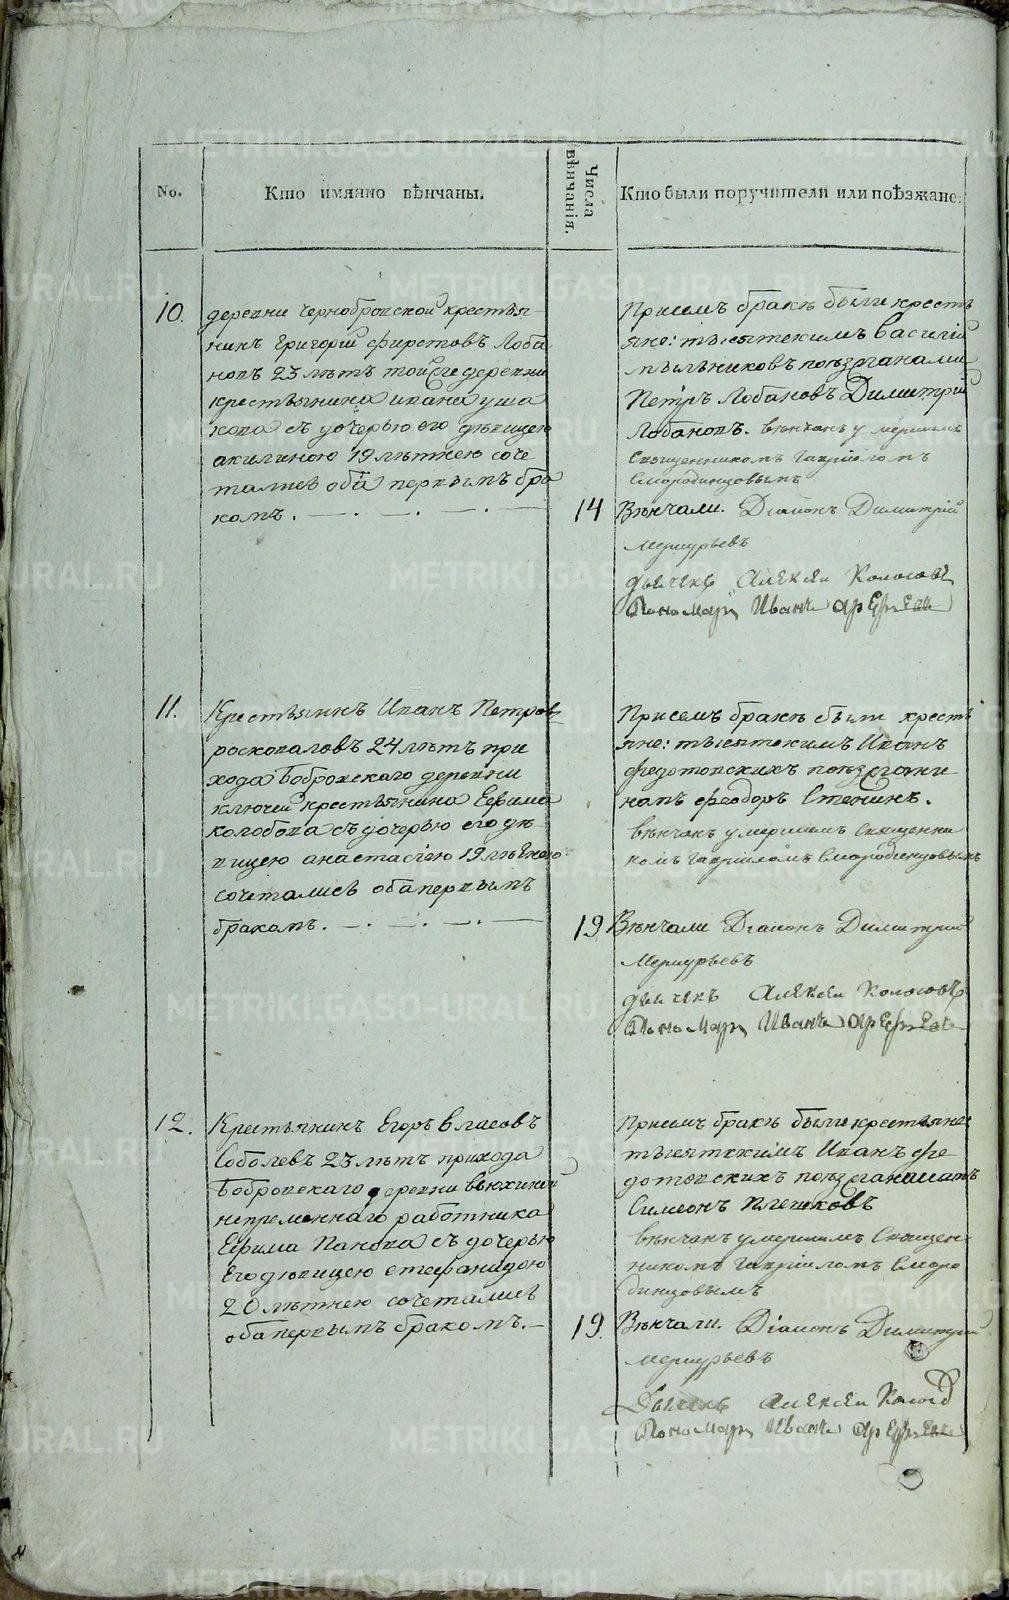 No.
Кто имянно вѣнчаны.
Числа вѣнчанія.
Кто были поручители или поѣзжане.
10.
деревни Чернобровской крестья-
нинъ Григорій Фирстовъ Лоба
новъ 23 лѣтъ той же деревни
крестьянина Ивана Уша
кова съ дочерью его дѣвицею
Акилиною 19 лѣтнею соче
тались оба первымъ бра
комъ.
14
При семъ бракѣ были кресть
яне: тысятскимъ Василій
Мыльниковъ поѣзжанами
Петръ Лобановъ Димитрій
Лобановъ. вѣнчанъ умершимъ
Священникомъ Гавріиломъ
Смородинцовымъ
Вѣнчали. Діаконъ Димитрій
Меркурьевъ
дьячекъ Алексѣй Колосовъ
Пономарь Иванъ Арефьевъ
11.
Крестьянинъ Иванъ Петровъ
Росковаловъ 24 лѣтъ при
хода Бобровскаго деревни
Ключей крестьянина Ефима
Колобова съ дочерью его дѣ
вицею Анастасіею 19 лѣтнею
сочетались оба первымъ
бракомъ.
19
При семъ бракѣ были кресть
яне: тысятскимъ Иванъ
Федотовскихъ поѣзжани
номъ Феодоръ Стенинъ.
вѣнчанъ умершимъ Священни
комъ Гавріиломъ Смородинцовымъ
Вѣнчали Діаконъ Димитрій
Меркурьевъ
дьячекъ Алексѣй Колосовъ
Пономарь Иванъ Арефьевъ
12.
Крестьянинъ Егоръ Власовъ
Соболевъ 23 лѣтъ прихода
Бобровскаго деревни Вьюхиной
непременнаго работника
Ефима Панова съ дочерью
его дѣвицею Стефанидою
20 лѣтнею сочетались
оба первымъ бракомъ.
19.
При семъ бракѣ были крестьяне
тысятскимъ Иванъ Фе
дотовскихъ поѣзжанамъ
Симеонъ Плешковъ
вѣнчанъ умершимъ Священ-
никомъ Гавріиломъ Сморо
динцовымъ
Вѣнчали. Діаконъ Димитрій
Меркурьевъ
Дьячекъ Алексѣй Колосов
Пономарь Иванъ Арефьевъ
METRIKI.GASO-URAL.RU